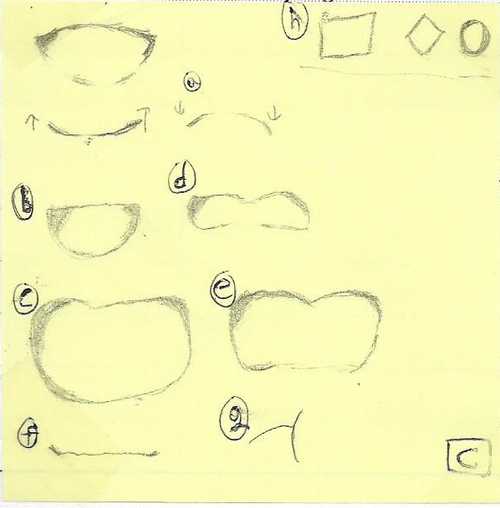 h
a
b
d
c
e
f
g
C